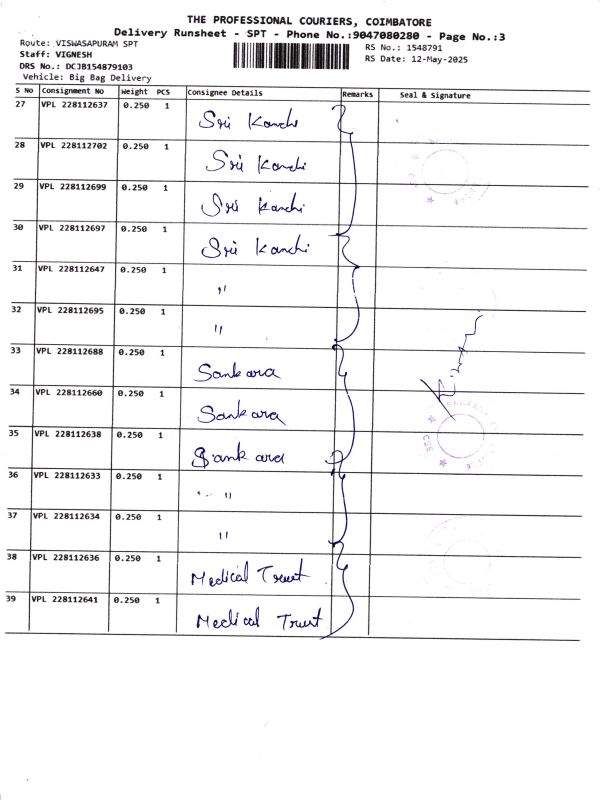 THE PROFESSIONAL COURIERS, COIMBATORE
Delivery Runsheet - SPT - Phone No.:9047080280 - Page No.:3
Route: VISWASAPURAM SPT
Staff: VIGNESH
DRS No.: DCJB154879103
Vehicle: Big Bag Delivery
RS No.: 1548791
RS Date: 12-May-2025
S No Consignment No Weight PCS Consignee Details Remarks Seal & Signature
27 VPL 228112637 0.250 1 Sri Kanchi
28 VPL 228112702 0.250 1 Sri Kanchi
29 VPL 228112699 0.250 1 Sri Kanchi
30 VPL 228112697 0.250 1 Sri Kanchi
31 VPL 228112647 0.250 1 "
32 VPL 228112695 0.250 1 "
33 VPL 228112688 0.250 1 Sankara
34 VPL 228112660 0.250 1 Sankara
35 VPL 228112638 0.250 1 Sankara
36 VPL 228112633 0.250 1 "
37 VPL 228112634 0.250 1 "
38 VPL 228112636 0.250 1 Medical Trust
39 VPL 228112641 0.250 1 Medical Trust